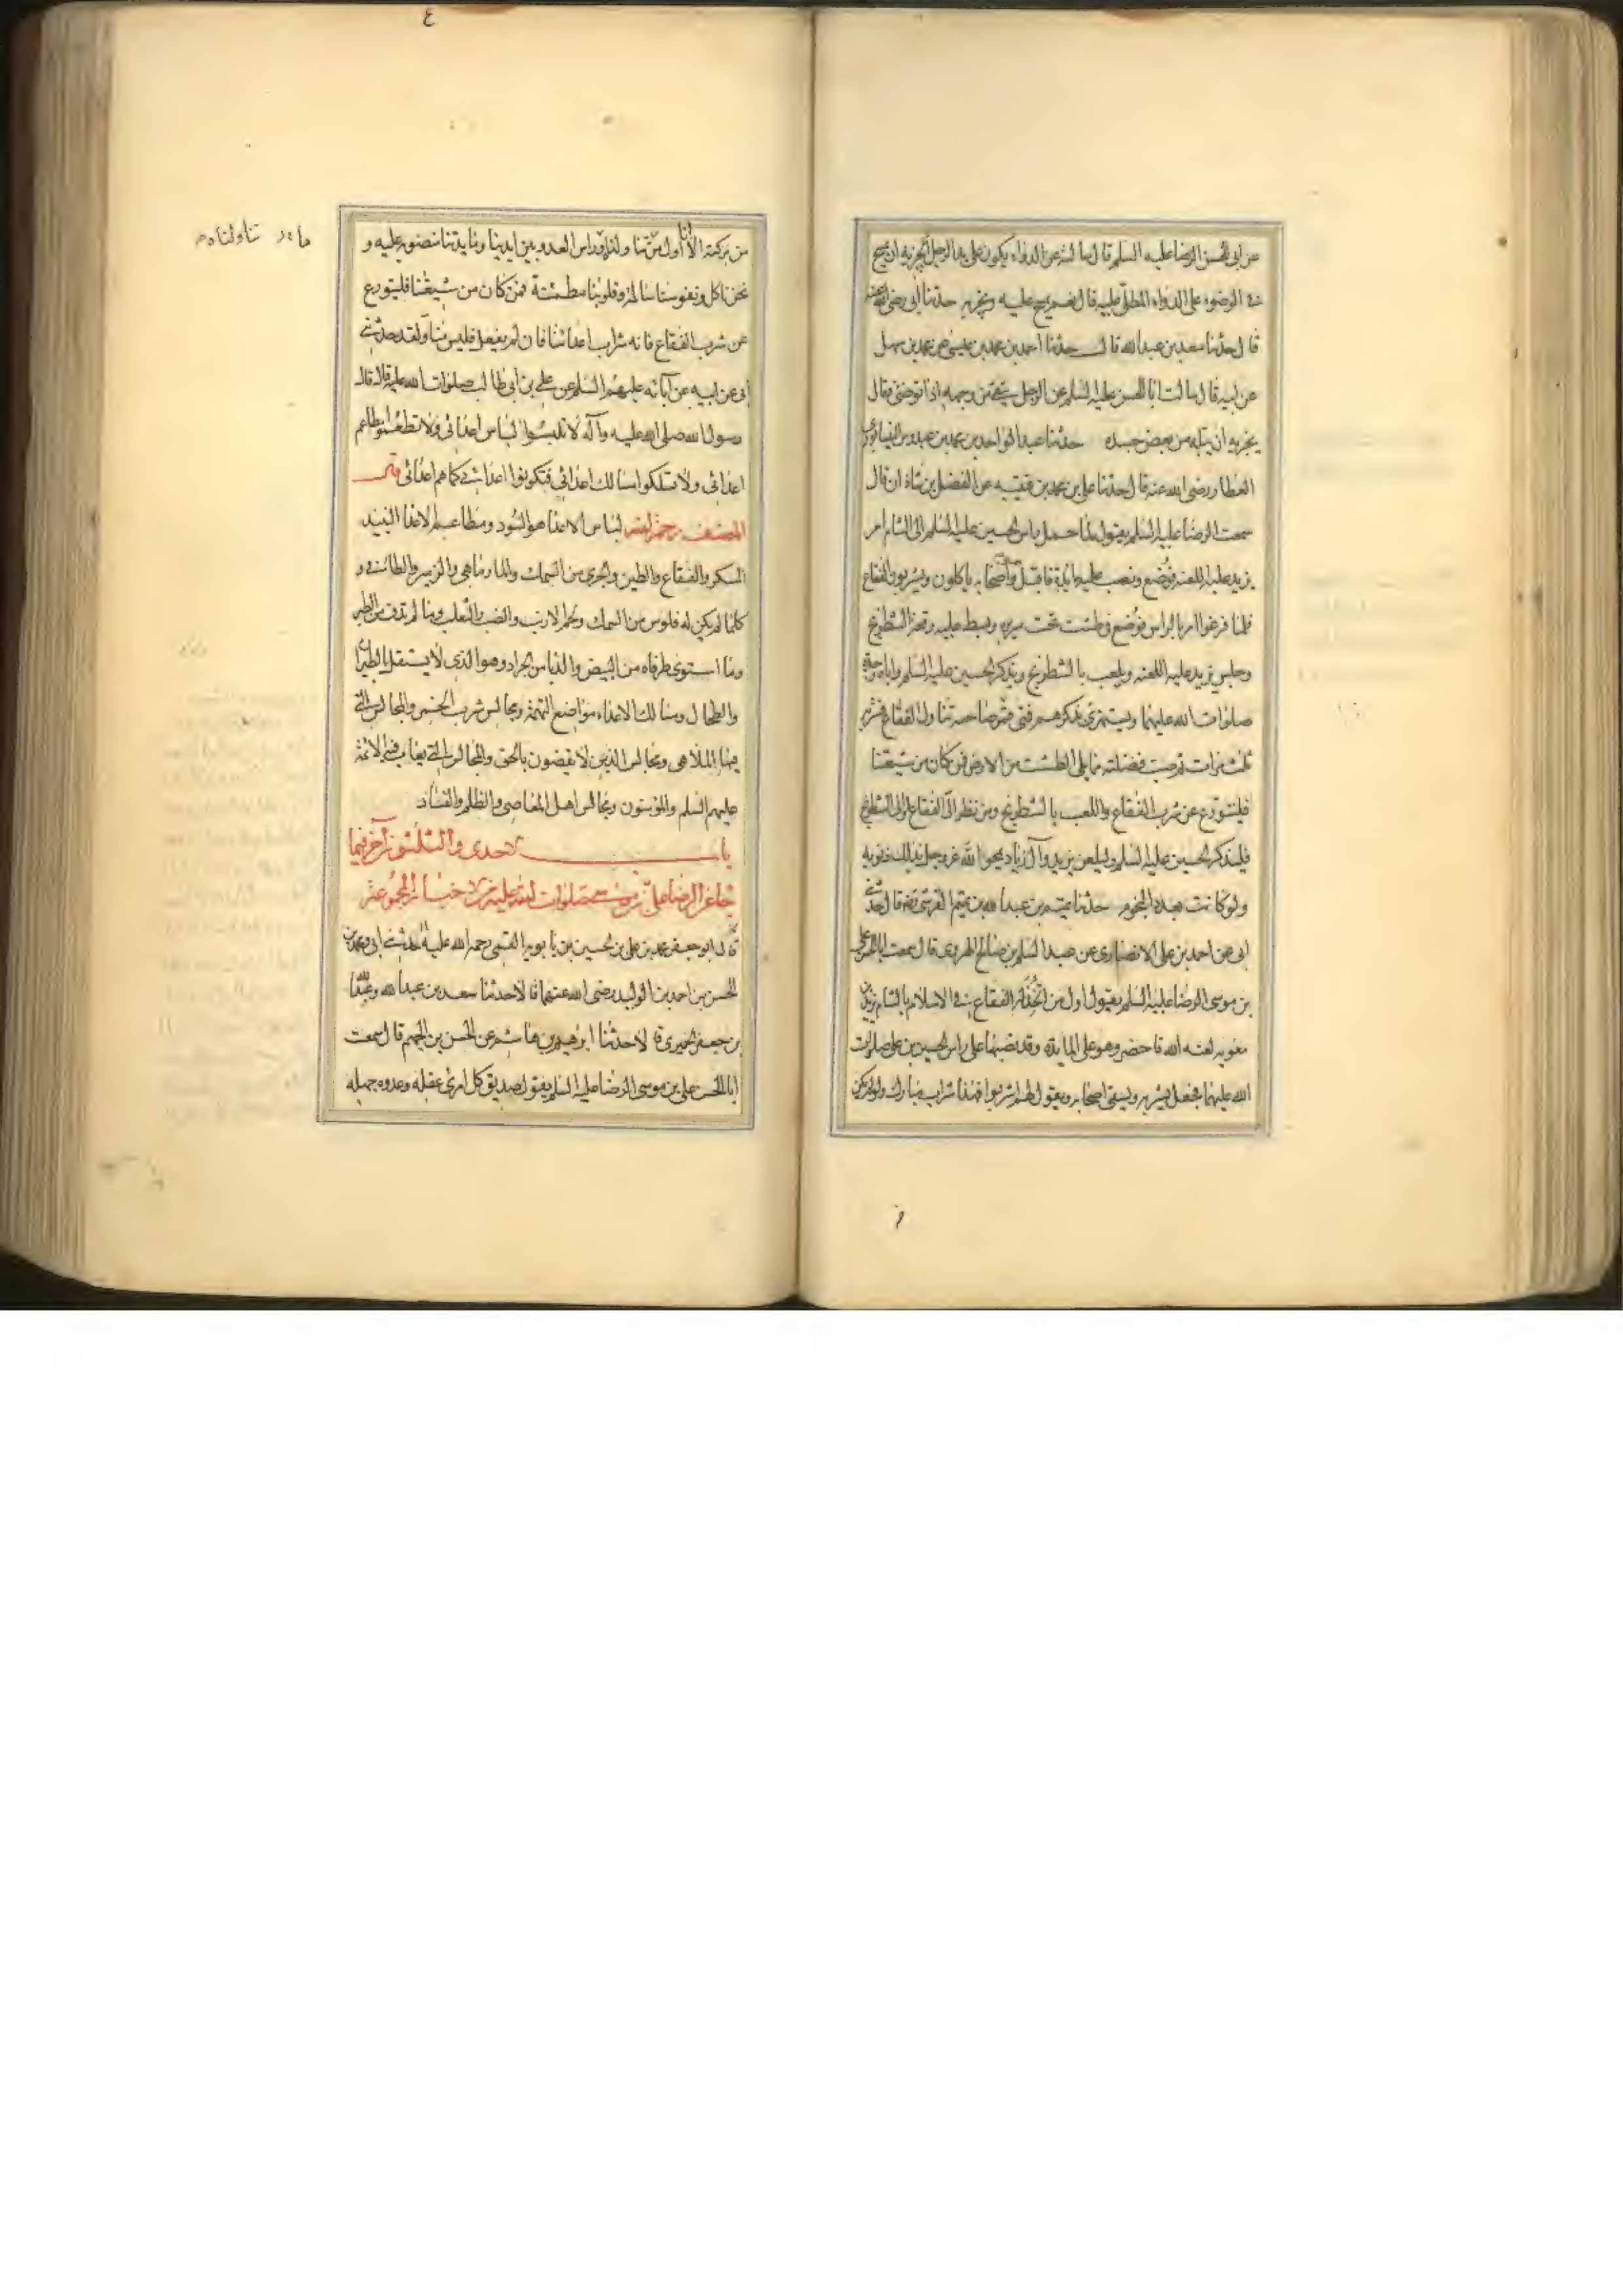 عن ابى الحسن الرضا عليه السلم قال سالته عن الدواء يكون على يد الرجل ايجزيه ان يمسح
فى الوضوء على الدواء المطلى عليه قال نعم يمسح عليه ويجزيه حدثنا ابى رضى الله عنه
قال حدثنا سعد بن عبد الله قال حدثنا احمد بن محمد بن عيسى عن محمد بن سهل
عن ابيه قال سالت ابا الحسن عليه السلم عن الرجل يبقى من وجهه اذا توضئ فقال
يجزيه ان يبله من بعض جسده حدثنا عبد الواحد بن محمد بن عبدوس النيسابورى
العطار رضى الله عنه قال حدثنا على بن محمد بن قتيبه عن الفضل بن شاذان قال
سمعت الرضا عليه السلم يقول لما حمل راس الحسين عليه السلم الى الشام امر
يزيد عليه اللعنه فوضع ونصب عليه مايدة فاقبل هو واصحابه ياكلون ويشربون الفقاع
فلما فرغوا امر بالراس فوضع فى طشت تحت سريره وبسط عليه رقعة الشطرنج
وجلس يزيد عليه اللعنه ويلعب بالشطرنج ويذكر الحسين عليه السلم واباه وجده
صلوات الله عليهما ويستهزئ بذكرهم فمتى قمر صاحبه تناول الفقاع فشربه
ثلث مرات ثم صب فضلته مما يلى الطشت من الارض فمن كان من شيعتنا
فليتورع عن شرب الفقاع واللعب بالشطرنج ومن نظر الى الفقاع او الى الشطرنج
فليذكر الحسين عليه السلم وليلعن يزيد وآل زياد يمحوا الله عز وجل بذلك ذنوبه
ولو كانت بعدد النجوم حدثنا تميم بن عبد الله بن تميم القرشى قال حدثنى
ابى عن احمد بن على الانصارى عن عبد السلم بن صالح الهروى قال سمعت ابا الحسن على
بن موسى الرضا عليه السلم يقول اول من اتخذ له الفقاع فى الاسلام بالشام يزيد بن
معويه لعنه الله فاحضر وهو على المايدة وقد نصبها على راس الحسين بن على صلوات
الله عليهما فجعل يشربه ويسقى اصحابه ويقول لهم اشربوا فهذا شراب مبارك ولو لم يكن
من بركته الا انا اول من تناولناه وراس العدو بين ايدينا ومايدتنا منصوبه عليه و
نحن ناكل ونفوسنا ساكنة وقلوبنا مطمئنة فمن كان من شيعتنا فليتورع
عن شرب الفقاع فانه شراب اعدائنا فان لم يفعل فليس منا ولقد حدثنى
ابى عن ابيه عن آبائه عليهم السلم عن على بن ابى طالب صلوات الله عليه قال قال
رسول الله صلى الله عليه وآله لا تلبسوا لباس اعدائى ولا تطعموا مطاعم
اعدائى ولا تسلكوا مسالك اعدائى فتكونوا اعدائى كما هم اعدائى قال
المصنف رحمه الله لباس الاعدا هو السود ومطاعم الاعدا النبيذ
المسكر والفقاع والطين والجرى من السمك والمارماهى والزمير والطافى و
كلما لم يكن له فلوس من السمك ولحم الارنب والضب والثعلب وما لم يدف من الطير
وما استوى طرفاه من البيض والدبا من الجراد وهو الذى لا يستقل بالطيران
والطحال ومسالك الاعداء مواضع التهمة ومجالس شرب الخمر والمجالس التى
فيها الملاهى ومجالس الذين لا يقضون بالحق والمجالس التى يعاب فيها الائمة
عليهم السلم والمؤمنون ومجالس اهل المعاصى والظلم والفساد
باب الاحدى والثلثون آخر فيما
جا عن الرضا على بن موسى صلوات الله عليه من الاخبار المجموعة
قال ابو جعفر محمد بن على بن الحسين بن بابويه القمى رحمه الله عليه حدثنى ابى ومحمد بن
الحسن بن احمد بن الوليد رضى الله عنهما قالا حدثنا سعد بن عبد الله وعبد الله
بن جعفر الحميرى قالا حدثنا ابرهيم بن هاشم عن الحسن بن الجهم قال سمعت
ابا الحسن على بن موسى الرضا عليه السلم يقول صديق كل امرئ عقله وعدوه جهله
تناولناه